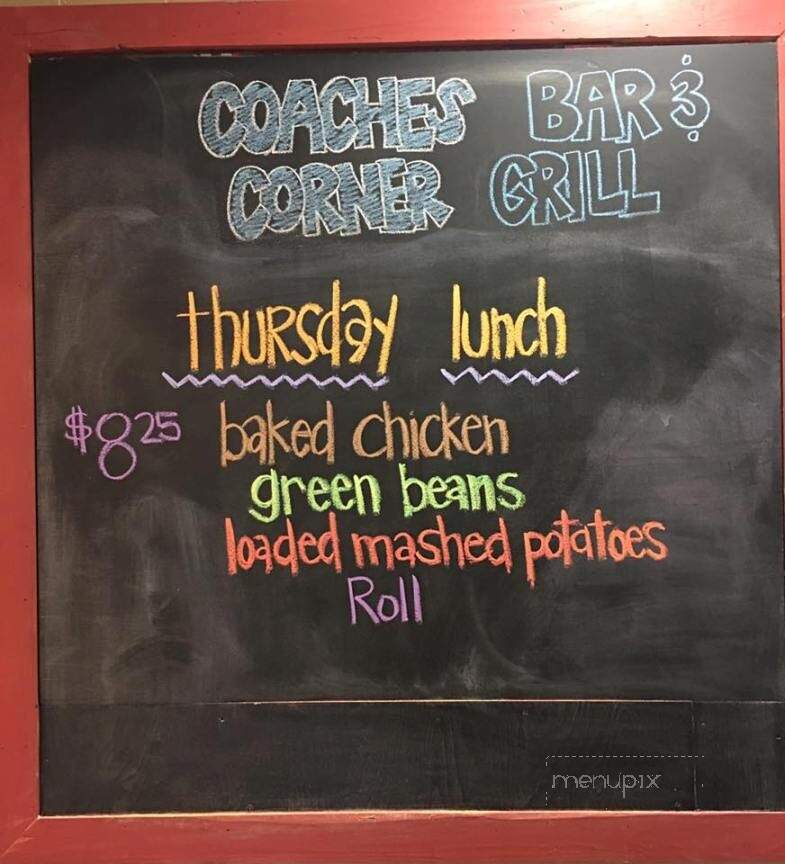 COACHES BAR &
CORNER GRILL
thursday lunch
$8.25 baked chicken
green beans
loaded mashed potatoes
Roll
menupix